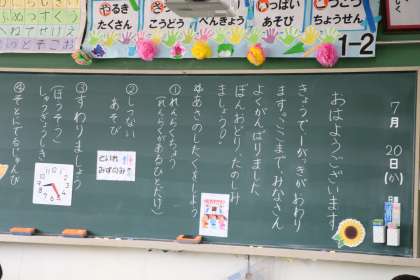 やるき
たくさん
こうどう
べんきょう
いっぱい
あそび
ちょうせん
1-2
7月20日(か)
おはようございます。
きょうで一がっきがおわり
ます。ここまでみなさん
よくがんばりました。
ぼんおどり、たのしみ
ましょう。
ゆあさのしたくをしよう
①れんらくちょう
(れんらくがあるひとだけ)
②しつない
あそび
といれ
みずのみ
③すわりましょう
(ほうそう)
しゅうぎょうしき
④そとにでるじゅんび